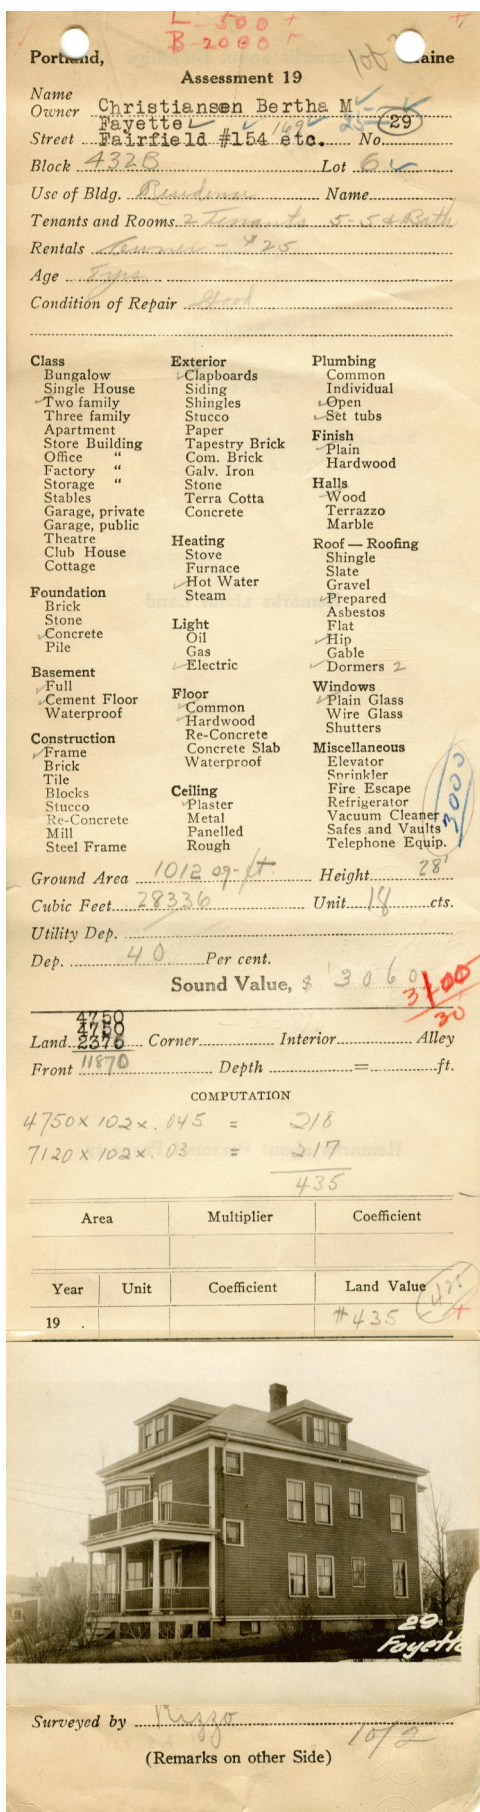 L - 500 +
B - 2000 +
Portland, Maine
Assessment 19
Name
Owner Christiansen Bertha M
Fayette 169 25 29
Street Fairfield #154 etc. No.
Block 432B Lot 6
Use of Bldg. Residence Name
Tenants and Rooms 2 Tenants 5-5 & Bath
Rentals 1 owner - $25
Age 7 yrs
Condition of Repair Good
Class
Bungalow
Single House
Two family
Three family
Apartment
Store Building
Office "
Factory "
Storage "
Stables
Garage, private
Garage, public
Theatre
Club House
Cottage
Foundation
Brick
Stone
Concrete
Pile
Basement
Full
Cement Floor
Waterproof
Construction
Frame
Brick
Tile
Blocks
Stucco
Re-Concrete
Mill
Steel Frame
Exterior
Clapboards
Siding
Shingles
Stucco
Paper
Tapestry Brick
Com. Brick
Galv. Iron
Stone
Terra Cotta
Concrete
Heating
Stove
Furnace
Hot Water
Steam
Light
Oil
Gas
Electric
Floor
Common
Hardwood
Re-Concrete
Concrete Slab
Waterproof
Ceiling
Plaster
Metal
Panelled
Rough
Plumbing
Common
Individual
Open
Set tubs
Finish
Plain
Hardwood
Halls
Wood
Terrazzo
Marble
Roof — Roofing
Shingle
Slate
Gravel
Prepared
Asbestos
Flat
Hip
Gable
Dormers 2
Windows
Plain Glass
Wire Glass
Shutters
Miscellaneous
Elevator
Sprinkler
Fire Escape
Refrigerator
Vacuum Cleaner
Safes and Vaults
Telephone Equip.
3000
Ground Area 1012 sq-ft. Height 28'
Cubic Feet 28336 Unit 18 cts.
Utility Dep.
Dep. 40 Per cent.
Sound Value, $ 3060
3100
30
4750
4750
Land 2376 Corner Interior Alley
Front 11870 Depth = ft.
COMPUTATION
4750 x 102 x .045 = 218
7120 x 102 x .03 = 217
435
Area Multiplier Coefficient
Year Unit Coefficient Land Value
425
19 . #435 +
29
Fayette
Surveyed by Rizzo
10/2
(Remarks on other Side)